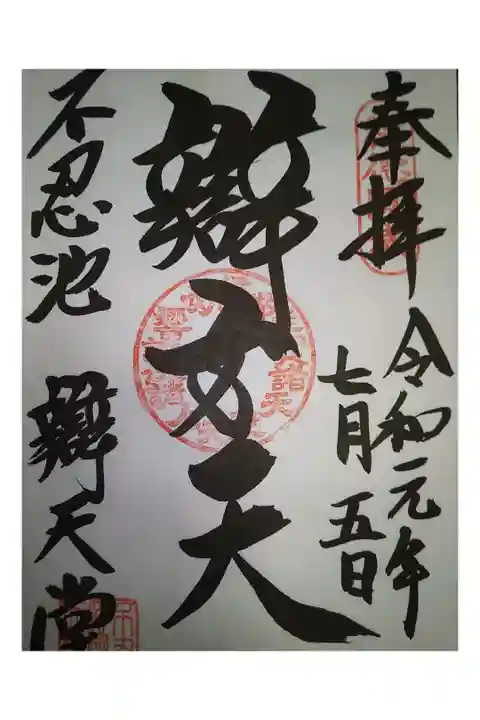 奉拝
令和元年
七月五日
辯才天
不忍池 辯天堂